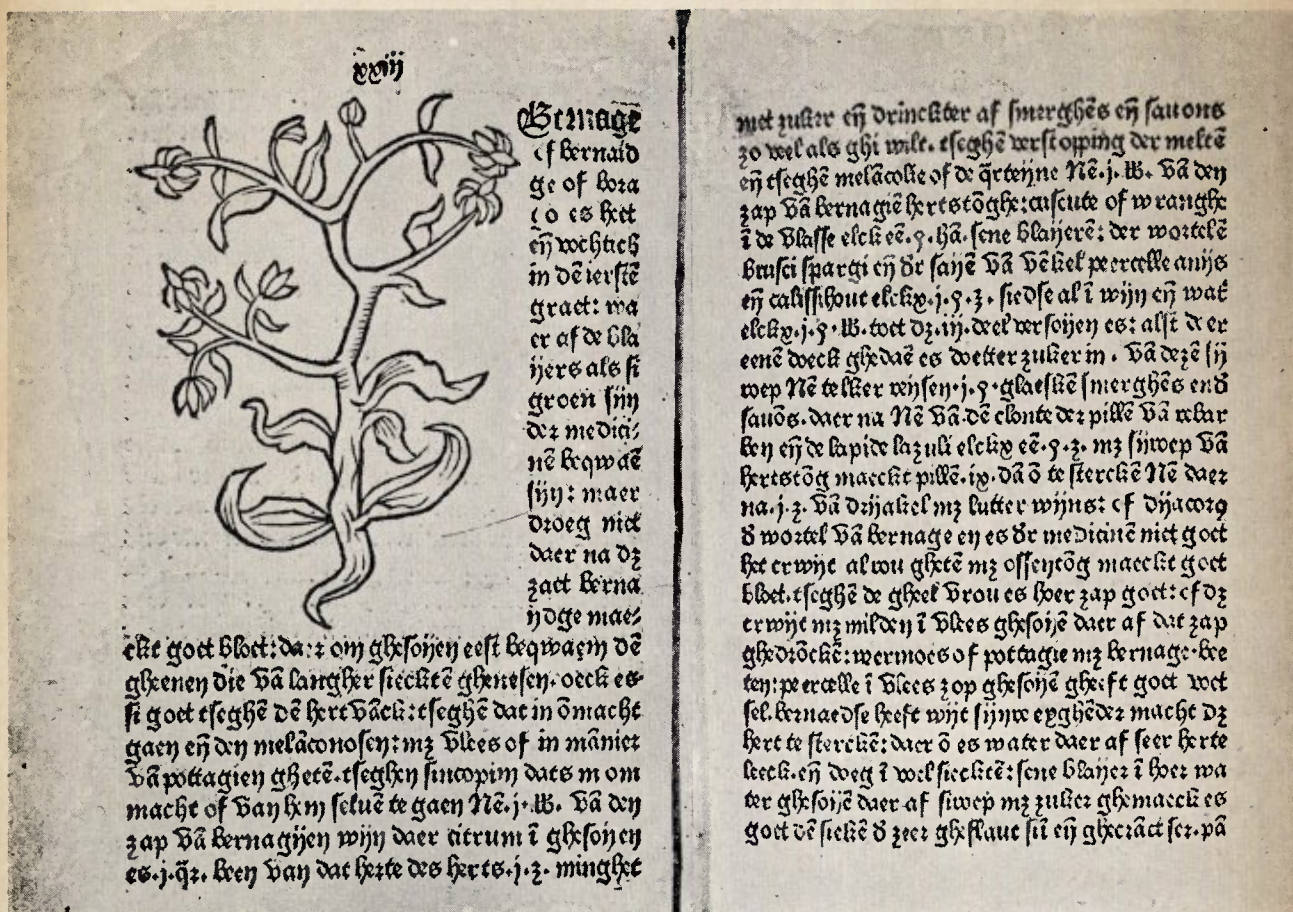 xxiij
Bernagē
of bernaid
ge of bora
go es heet
eñ vochtich
in dē iersтē
graet: wa
er af de bla
ijers als si
groen sijn
der medici⸗
nē beqwaē
sijn: maer
droeg niet
daer na dꝫ
zaet berna
ijdge mae⸗
ckt goet bloet: daer om ghesoijen eest beqwaem dē
gheenen die vā langher sieckтē ghenesen. oeck es⸗
si goet tseghē dē hertvāck: tseghē dat in ōmacht
gaen eñ den melāconosen: mꝫ vlees of in mānier
vā pottagien ghetē. tseghen sincopim dats in om
macht of van hem seluē te gaen Nē. j. lb. vā den
zap vā bernagijen wijn daer citrum ī ghesoijen
es. j. q̄r. been van dat herte des herts. j. ʒ. minghet
met zuker eñ drinckter af smerghēs eñ sauons
zo wel als ghi wilt. tseghē verstopping der meltē
eñ tseghē melācolie of de q̄rteijne Nē. j. lb. vā den
zap vā bernagiē hertstōghe: cuscute of wranghe
ī de vlasse elck eē. ꝯ. hā. sene blaijerē: der wortelē
brusci spargi eñ dr saijē vā vēkel peercelle anijs
eñ calissihout elckx. j. ꝯ. ʒ. siedse al ī wijn eñ wat̄
elckx. j. ꝯ. lb. toet dꝫ. iij. deel versoijen es: alst d'er
eenē weck ghedaē es doetter zuker in. vā dezē sij
roep Nē telker reijsen. j. ꝯ. glaeskē smerghēs end
sauōs. daer na Nē vā dē clonte der pillē vā rebar
ben eñ de lapide lazuli elckx eē. ꝯ. ʒ. mꝫ sijroep vā
hertstōg maeckt pillē. ix. dā ō te sterckē Nē daer
na. j. ʒ. vā drijakel mꝫ lutter wijns: of dijacorꝯ
d wortel vā bernage en es dr medicinē niet goet
het erwijt alwu ghetē mꝫ ossentōg maeckt goet
bloet. tseghē de gheel vrou es hoer zap goet: of dꝫ
erwijt mꝫ milden ī vlees ghesoijē daer af dat zap
ghedrōckē: wermoes of pottagie mꝫ bernage. bee
ten: peercelle ī vlees zop ghesoijē gheeft goet voet
sel. bernaedse heeft wijt sijnre eyghēder macht dꝫ
hert te sterckē: daer ō es water daer af seer herte
leeck. eñ doeg ī vol sieckтē: sene blaijer ī hoer wa
ter ghesoijē daer af siroep mꝫ zuker ghemaeckt es
goet dē siekē d zeer gheflaut sū eñ ghecrāct ser. pā